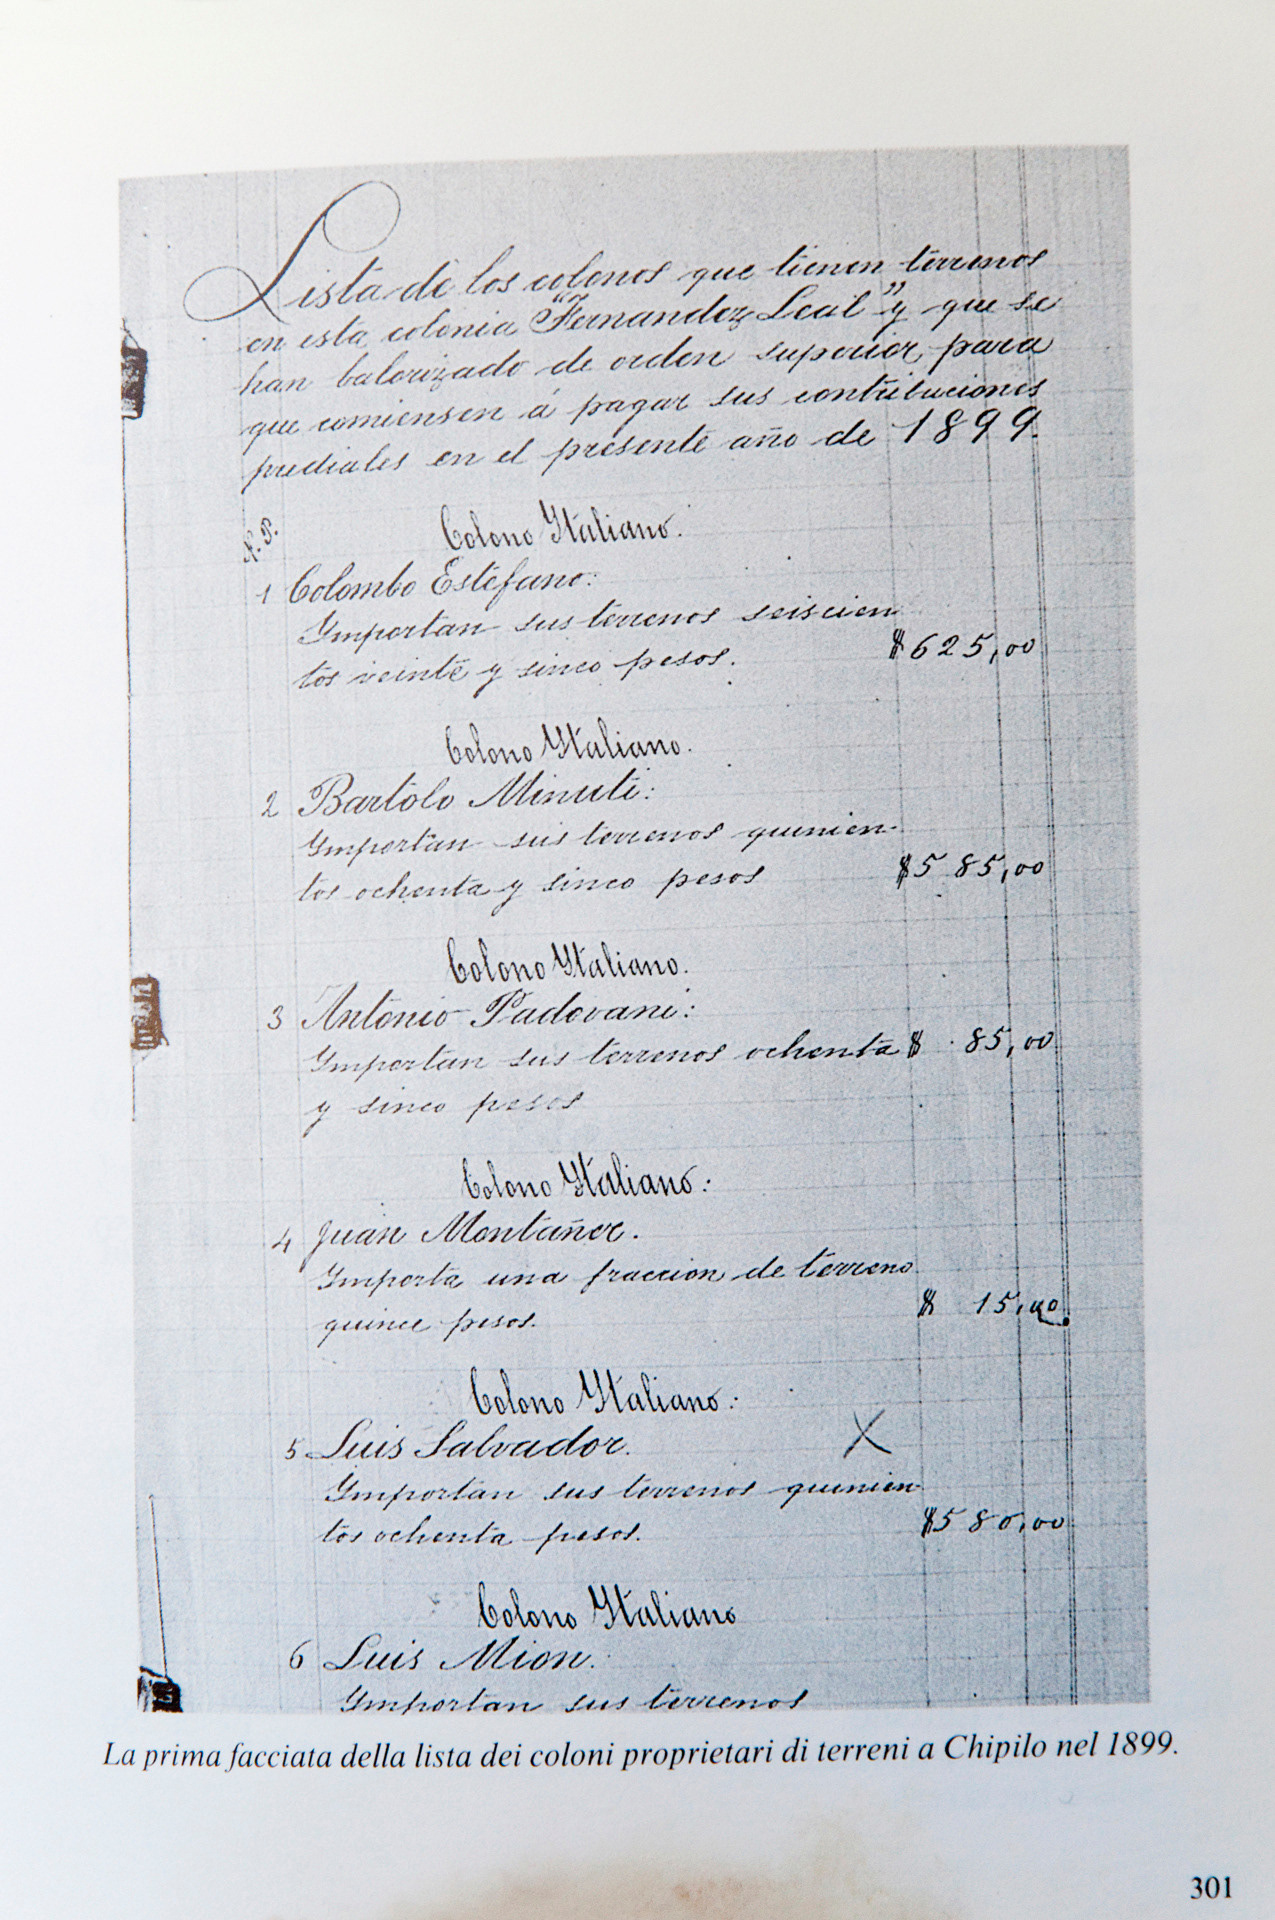 Lista de los colonos que tienen terrenos
en esta colonia "Fernandez Leal" y que se
han balorizado de orden superior, para
que comiensen á pagar sus contribuciones
prediales en el presente año de 1899.
N. P.
Colono Italiano.
1 Colombo Estefano:
Importan sus terrenos seiscien
tos veinte y sinco pesos. $625,00
Colono Italiano.
2 Bartolo Minuti:
Importan sus terrenos quinien-
tos ochenta y sinco pesos $585,00
Colono Italiano.
3 Antonio Padovani:
Importan sus terrenos ochenta $ 85,00
y sinco pesos
Colono Italiano:
4 Juan Montañer.
Importa una fraccion de terreno
quince pesos. $ 15,00
Colono Italiano:
5 Luis Salvador. X
Importan sus terrenos quinien-
tos ochenta pesos. $580,00
Colono Italiano
6 Luis Mion.
Importan sus terrenos
La prima facciata della lista dei coloni proprietari di terreni a Chipilo nel 1899.
301